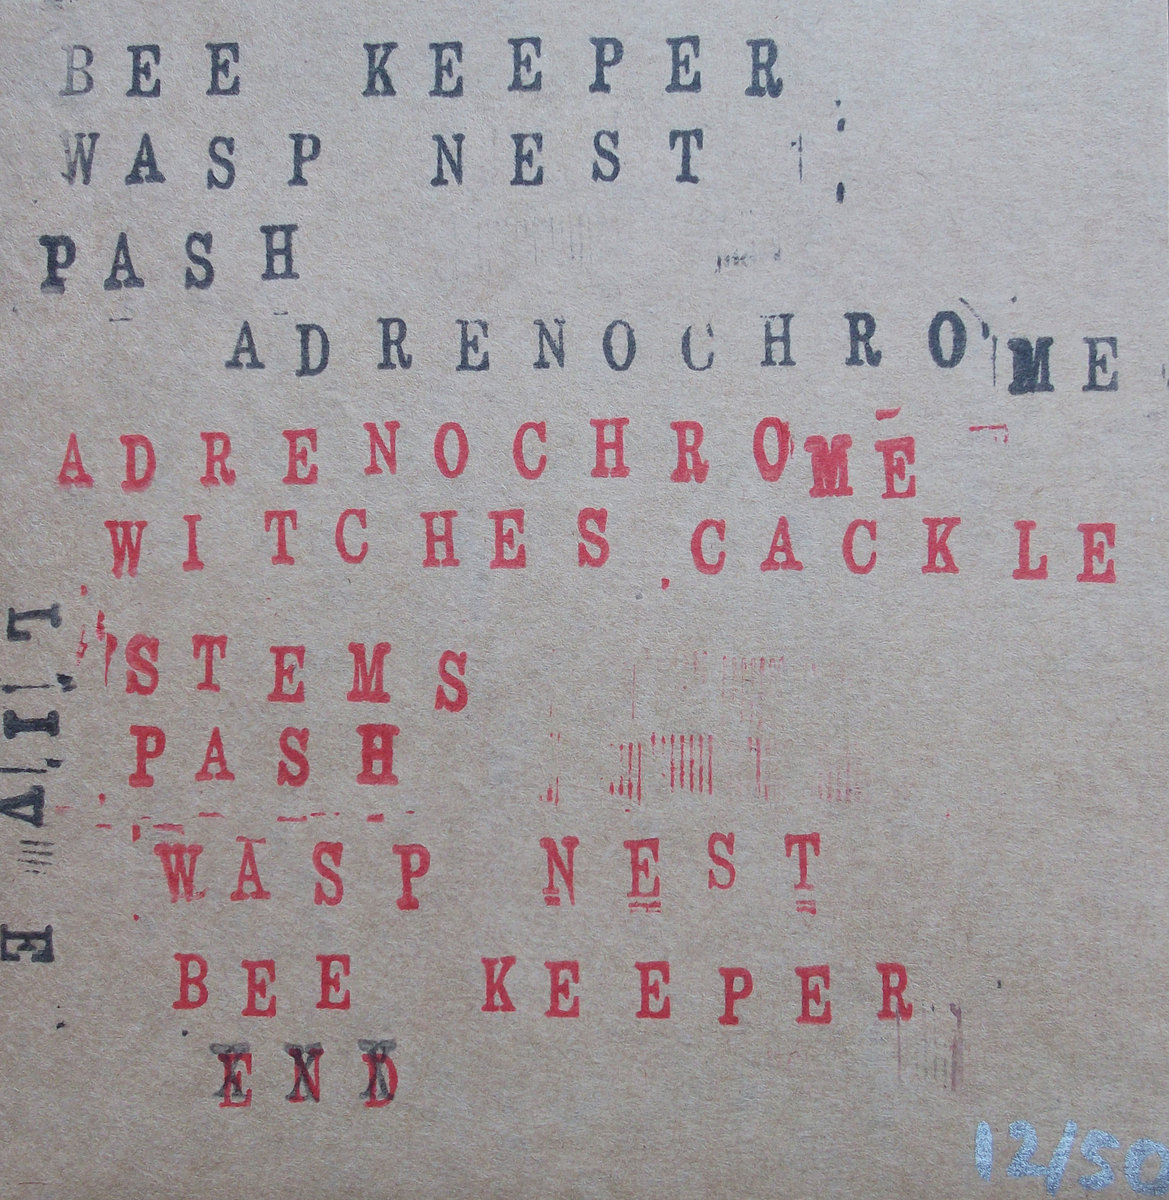 BEE KEEPER
WASP NEST
PASH
ADRENOCHROME
ADRENOCHROME
WITCHES CACKLE
STEMS
PASH
WASP NEST
BEE KEEPER
END
12/50